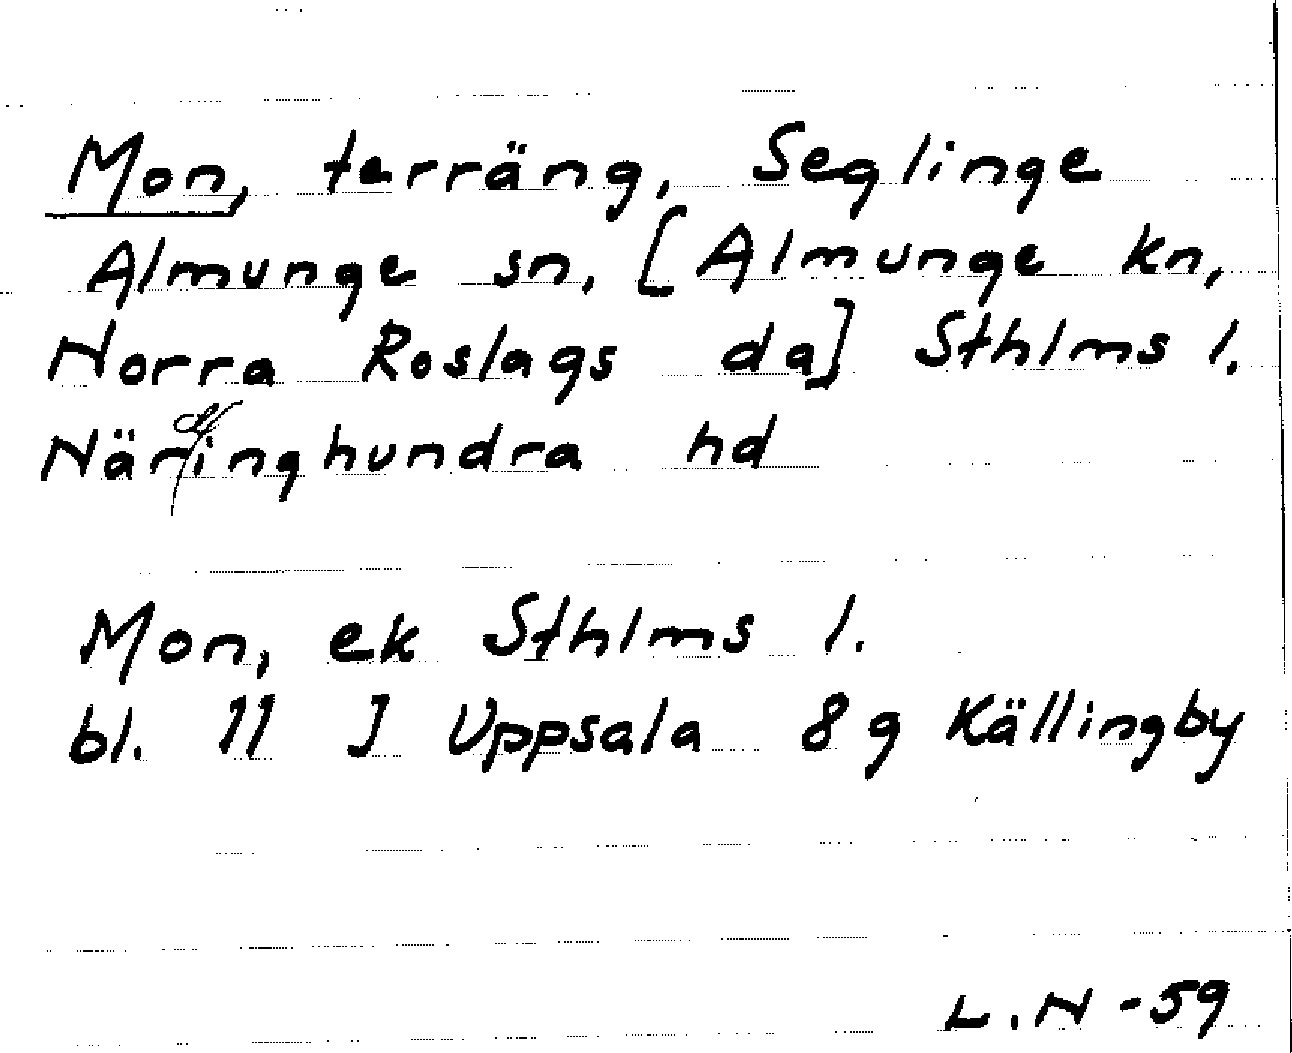 Mon, terräng, Seglinge
Almunge sn, [Almunge kn,
Norra Roslags da] Sthlms l.
Närdinghundra hd
Mon, ek Sthlms l.
bl. 11 J Uppsala 8 g Källingby
L.N -59